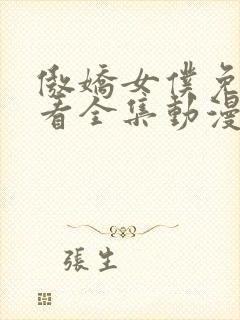 傲嬌女僕免
看全集動漫
張生